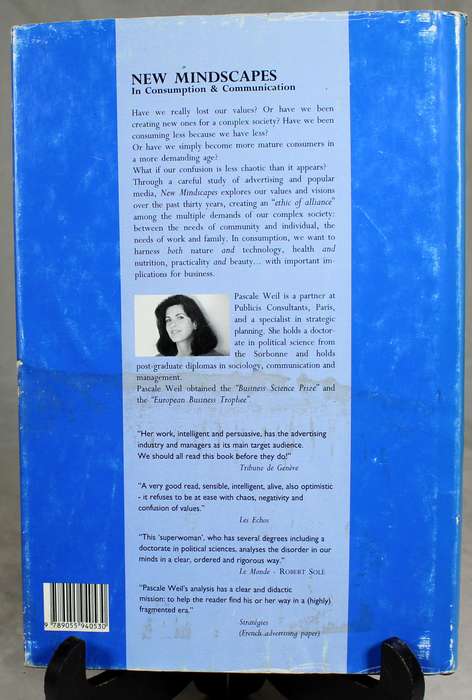 NEW MINDSCAPES
In Consumption & Communication
Have we really lost our values? Or have we been
creating new ones for a complex society? Have we been
consuming less because we have less?
Or have we simply become more mature consumers in
a more demanding age?
What if our confusion is less chaotic than it appears?
Through a careful study of advertising and popular
media, New Mindscapes explores our values and visions
over the past thirty years, creating an "ethic of alliance"
among the multiple demands of our complex society:
between the needs of community and individual, the
needs of work and family. In consumption, we want to
harness both nature and technology, health and
nutrition, practicality and beauty... with important im-
plications for business.
Pascale Weil is a partner at
Publicis Consultants, Paris,
and a specialist in strategic
planning. She holds a doctor-
ate in political science from
the Sorbonne and holds
post-graduate diplomas in sociology, communication and
management.
Pascale Weil obtained the "Business Science Prize" and
the "European Business Trophee".
"Her work, intelligent and persuasive, has the advertising
industry and managers as its main target audience.
We should all read this book before they do!"
Tribune de Genève
"A very good read, sensible, intelligent, alive, also optimistic
- it refuses to be at ease with chaos, negativity and
confusion of values."
Les Echos
"This 'superwoman', who has several degrees including a
doctorate in political sciences, analyses the disorder in our
minds in a clear, ordered and rigorous way."
Le Monde - ROBERT SOLÉ
"Pascale Weil's analysis has a clear and didactic
mission: to help the reader find his or her way in a (highly)
fragmented era."
Stratégies
(French advertising paper)
9 789055 940530